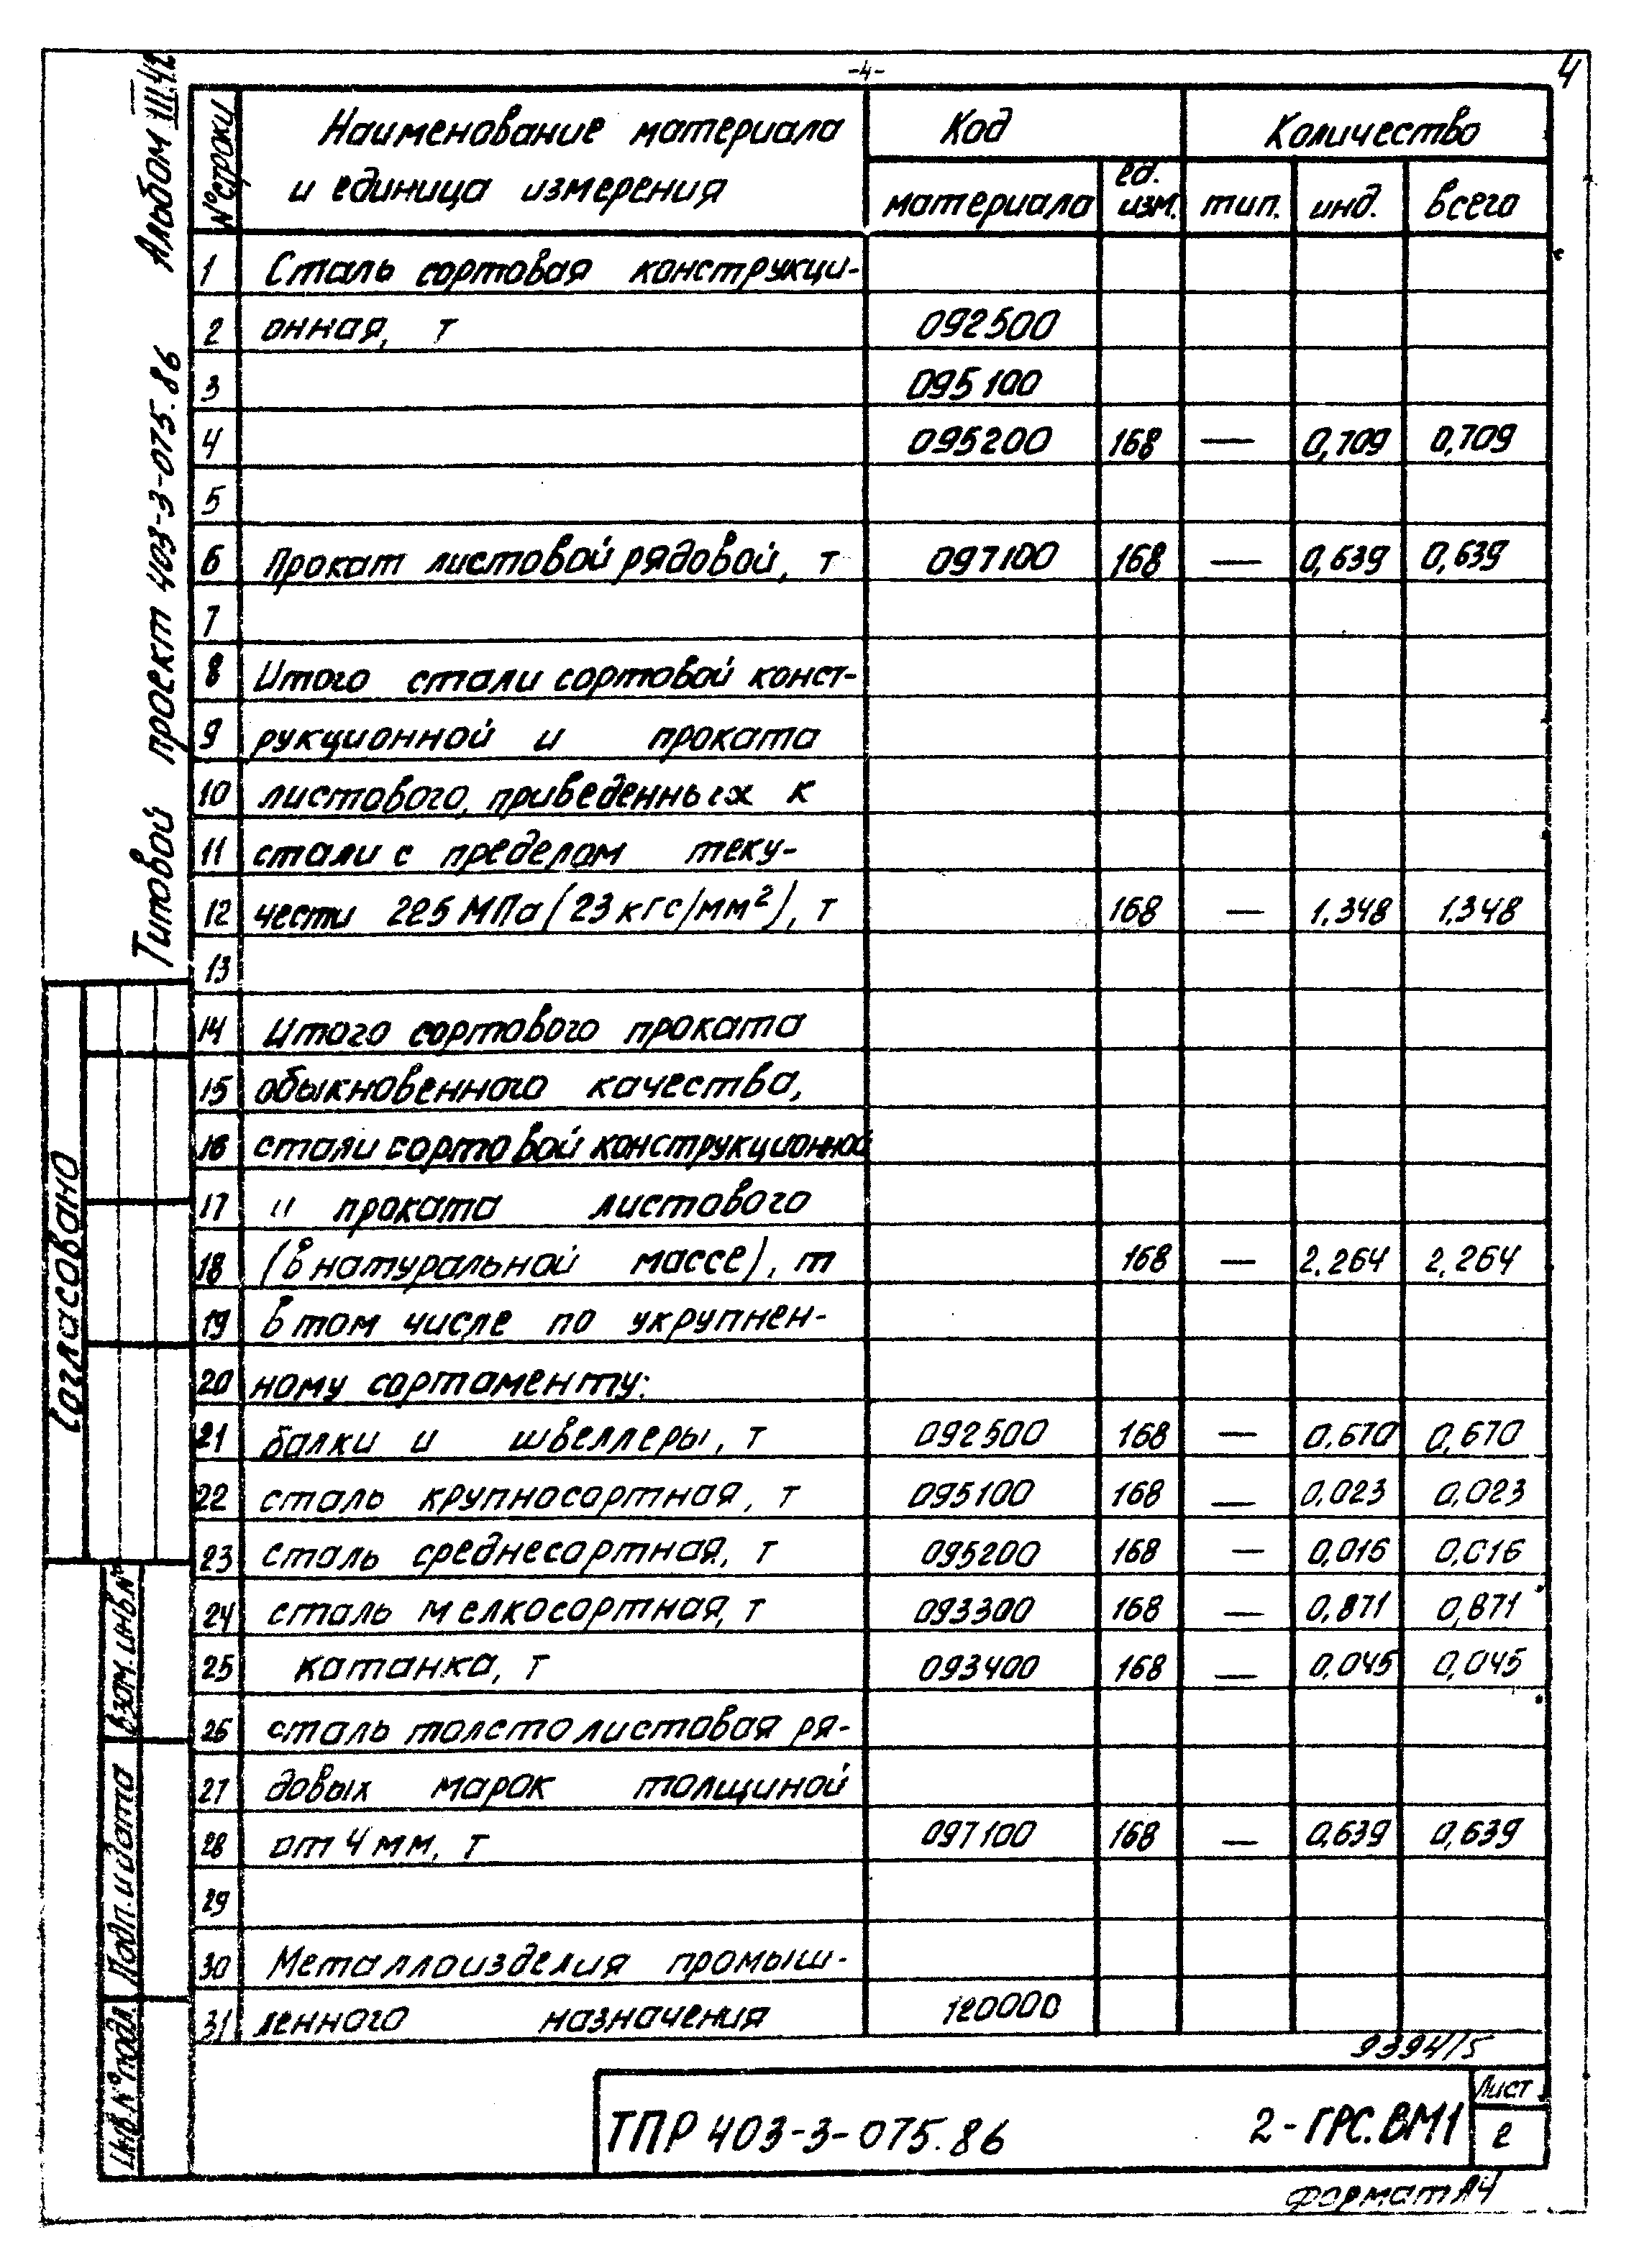 -4-
4
Альбом III.42
Типовой проект 403-3-075.86
№ строки
Наименование материала
и единица измерения
Код
Количество
материала
ед. изм.
тип.
инд.
всего
1 Сталь сортовая конструкци-
2 онная, т 092500
3 095100
4 095200 168 — 0,709 0,709
5
6 Прокат листовой рядовой, т 097100 168 — 0,639 0,639
7
8 Итого стали сортовой конст-
9 рукционной и проката
10 листового, приведенных к
11 стали с пределом теку-
12 чести 225 МПа (23 кгс/мм²), т 168 — 1.348 1.348
13
14 Итого сортового проката
15 обыкновенного качества,
16 стали сортовой конструкционной
17 и проката листового
18 (в натуральной массе), т 168 — 2.264 2.264
19 В том числе по укрупнен-
20 ному сортаменту:
21 балки и швеллеры, т 092500 168 — 0.670 0,670
22 сталь крупносортная, т 095100 168 — 0.023 0,023
23 сталь среднесортная, т 095200 168 — 0,016 0,016
24 сталь мелкосортная, т 093300 168 — 0,871 0,871
25 катанка, т 093400 168 — 0,045 0,045
26 сталь толстолистовая ря-
27 довых марок толщиной
28 от 4 мм, т 097100 168 — 0.639 0,639
29
30 Металлоизделия промыш-
31 ленного назначения 120000
9394/5
Согласовано
Взам. инв.№
Подп. и дата
Инв.№ подл.
ТПР 403-3-075.86 2-ГРС.ВМ1
Лист
2
Формат А4